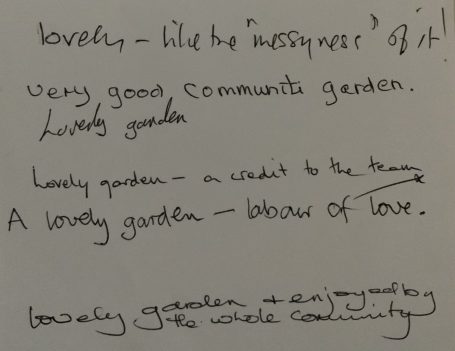 lovely - like the "messyness" of it!
very good, communiti garden.
Loverly garden
Lovely garden - a credit to the team
A lovely garden - labour of love.
lovely garden + enjoyed by
the whole community